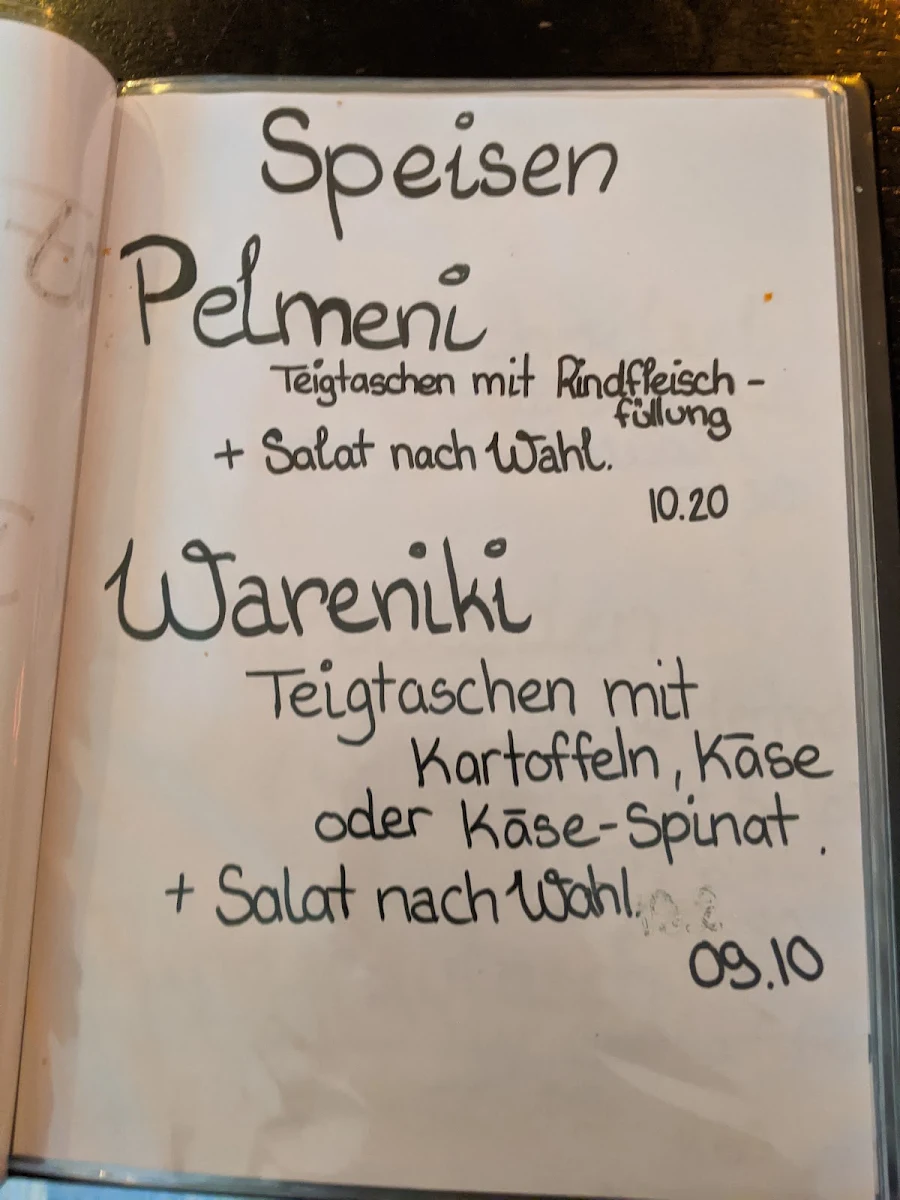 Speisen
Pelmeni
Teigtaschen mit Rindfleisch-
füllung
+ Salat nach Wahl.
10.20
Wareniki
Teigtaschen mit
Kartoffeln, Käse
oder Käse-Spinat.
+ Salat nach Wahl.
09.10